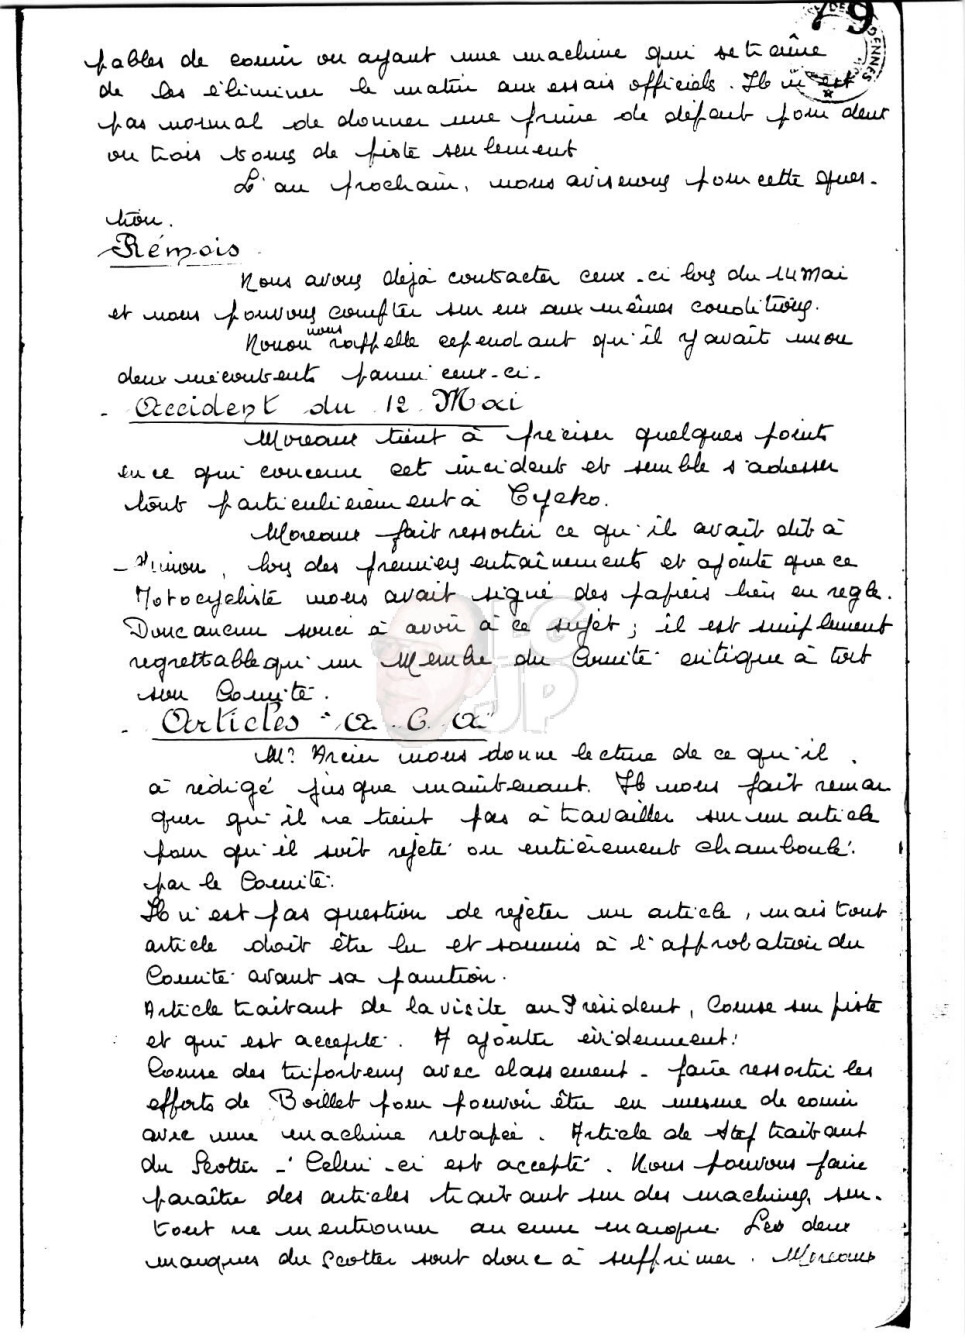 79
pables de courir ou ayant une machine qui se traîne
de les éliminer le matin aux essais officiels. Il n'est
pas normal de donner une prime de départ pour deux
ou trois tours de piste seulement
L'an prochain, nous aviserons pour cette ques-
tion.
Rémois
Nous avons déjà contacter ceux-ci lors du 14 mai
et nous pouvons compter sur eux aux mêmes conditions.
nous rappelle cependant qu'il y avait un ou
deux mécontents parmi ceux-ci-
- Accident du 12 Mai
Moreaux tient à préciser quelques points
en ce qui concerne cet incident et semble s'adresser
tout particulièrement à
Moreaux fait ressortir ce qu'il avait dit à
, lors des premiers entraînements et ajoute que ce
Motocycliste nous avait signé des papiers bien en regle.
Donc aucun souci à avoir à ce sujet ; il est simplement
regrettable qu'un Membre du Comité critique à tort
son Comité.
- Articles "A. C. A"
Mr nous donne lecture de ce qu'il
a rédigé jusque maintenant. Il nous fait remar
quer qu'il ne tient pas à travailler sur un article
pour qu'il soit rejeté ou entièrement chamboulé.
par le Comité.
Il n'est pas question de rejeter un article, mais tout
article doit être lu et soumis à l'approbation du
Comité avant sa parution.
Article traitant de la visite au Président, Course sur piste
et qui est accepté. A ajouter évidemment:
Course des triporteurs avec classement - faire ressortir les
efforts de Boillet pour pouvoir être en mesure de courir
avec une machine retapée. Article de Stef traitant
du Scotter -. Celui-ci est accepté. Nous pouvons faire
paraître des articles traitant sur des machines, sur-
tout ne mentionner aucune marque. Les deux
marques du Scotter sont donc à supprimer. Moreaux